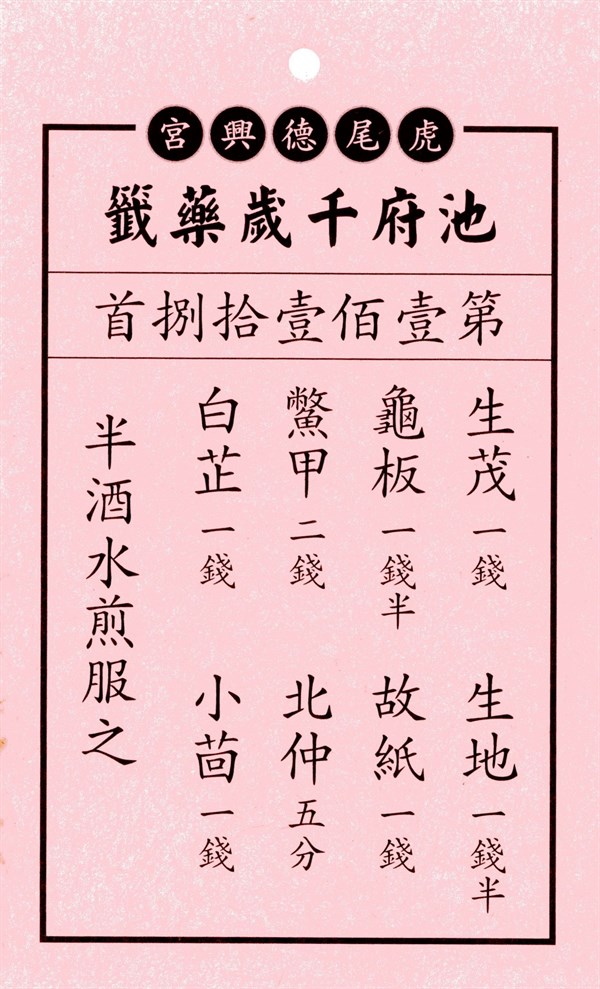 虎尾德興宮
池府千歲藥籤
第壹佰壹拾捌首
生茂一錢 生地一錢半
龜板一錢半 故紙一錢
鱉甲二錢 北仲五分
白芷一錢 小茴一錢
半酒水煎服之